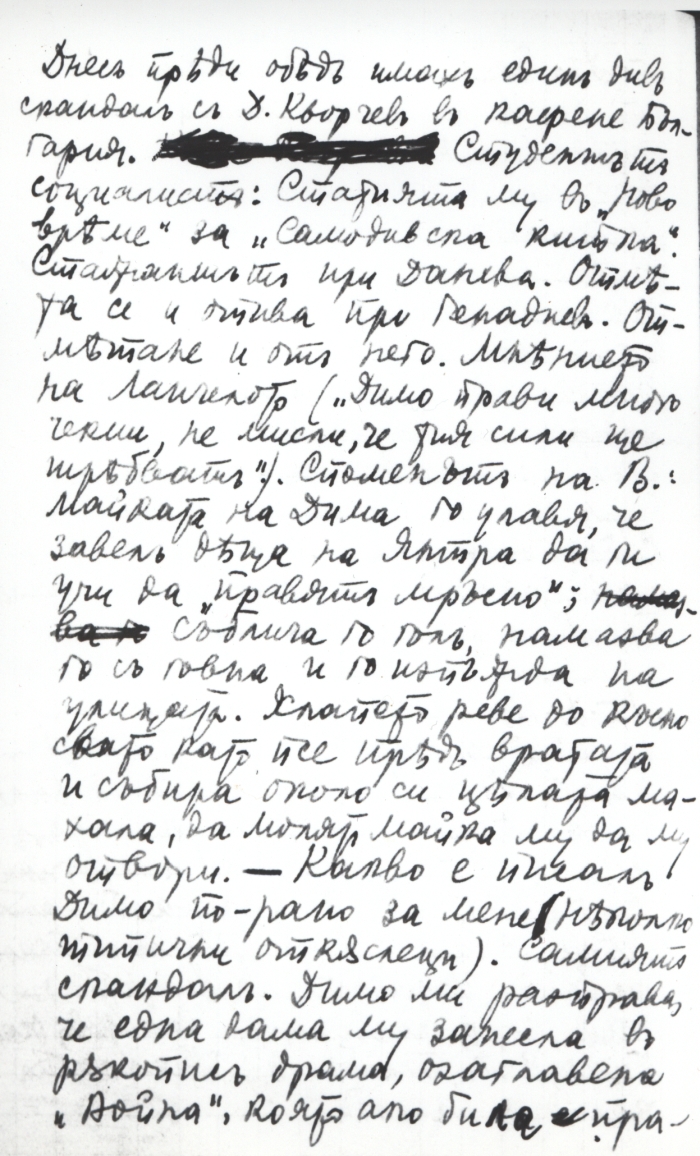 Днесъ прѣди обѣдъ имахъ единъ дивъ
скандалъ съ Д. Кьорчевъ въ кафене Бъл-
гария. Студентътъ
социалистъ: Статията му въ „Ново
врѣме“ за „Самодивска китка“.
Стажантътъ при Данева. Отмѣ-
та се и отива при Генадиевъ. От-
мѣтане и отъ него. Мнѣнието
на Ланчепото („Димо прави много
чекии, не мисли, че тия сили ще
трѣбватъ“). Споменътъ на В.:
майката на Дима го улавя, че
завелъ дѣца на Янтра да ги
учи да „правятъ мръсно“;
съблича го голъ, намазва
го съ говна и го изпѫжда на
улицата. Хлапето реве до късно
като псе прѣдъ вратата
и събира около си цѣлата ма-
хала, да молятъ майка му да му
отвори. — Какво е писалъ
Димо по-рано за мене (нѣколко
типични откѫслеци). Самиятъ
скандалъ. Димо ми разправя,
че една дама му занесла въ
рѫкопись драма, озаглавена
която ако била пра-